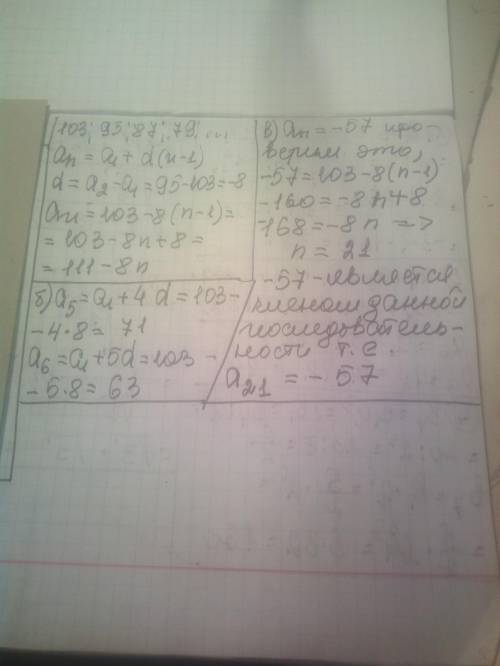 103; 95; 87; 79, ...
an = a1 + d(n-1)
d = a2 - a1 = 95-103 = -8
an = 103-8(n-1) =
= 103-8n+8 =
= 111-8n
б) a5 = a1 + 4 d = 103 -
- 4·8 = 71
a6 = a1 + 5d = 103 -
- 5·8 = 63
в) an = -57 про-
верим это,
-57 = 103-8(n-1)
-160 = -8n+8
-168 = -8n =>
n = 21
-57 - является
членом данной
последователь-
ности т.е.
a21 = -57